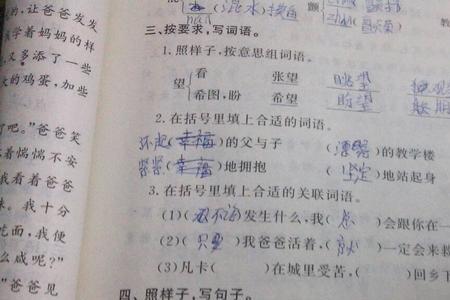 ,让爸爸发发
(混水)
我学着妈妈的样
三、按要求,写词语。
又多添了一些
1.照样子,按意思组词语。
大的鸡蛋,加些
望 看 张望 眺望
希图,盼 希望 盼望
2.在括号里填上合适的词语。
了吧。”爸爸笑
(幸福)的父与子 (漂亮)的教学楼
着惴惴不安
紧紧(幸福)地拥抱 (坚定)地站起身
我看着爸爸
3.在括号里填上合适的关联词语。
味。我十分
(1)(不论)发生什么,我(总)会跟你在一
吃面,我便
(2)(只要)我爸爸活着,( )一定会来救
么咸呢?”
(3)凡卡( )在城里受苦,( )回乡下
“爸爸见
四、照样子,写句子。